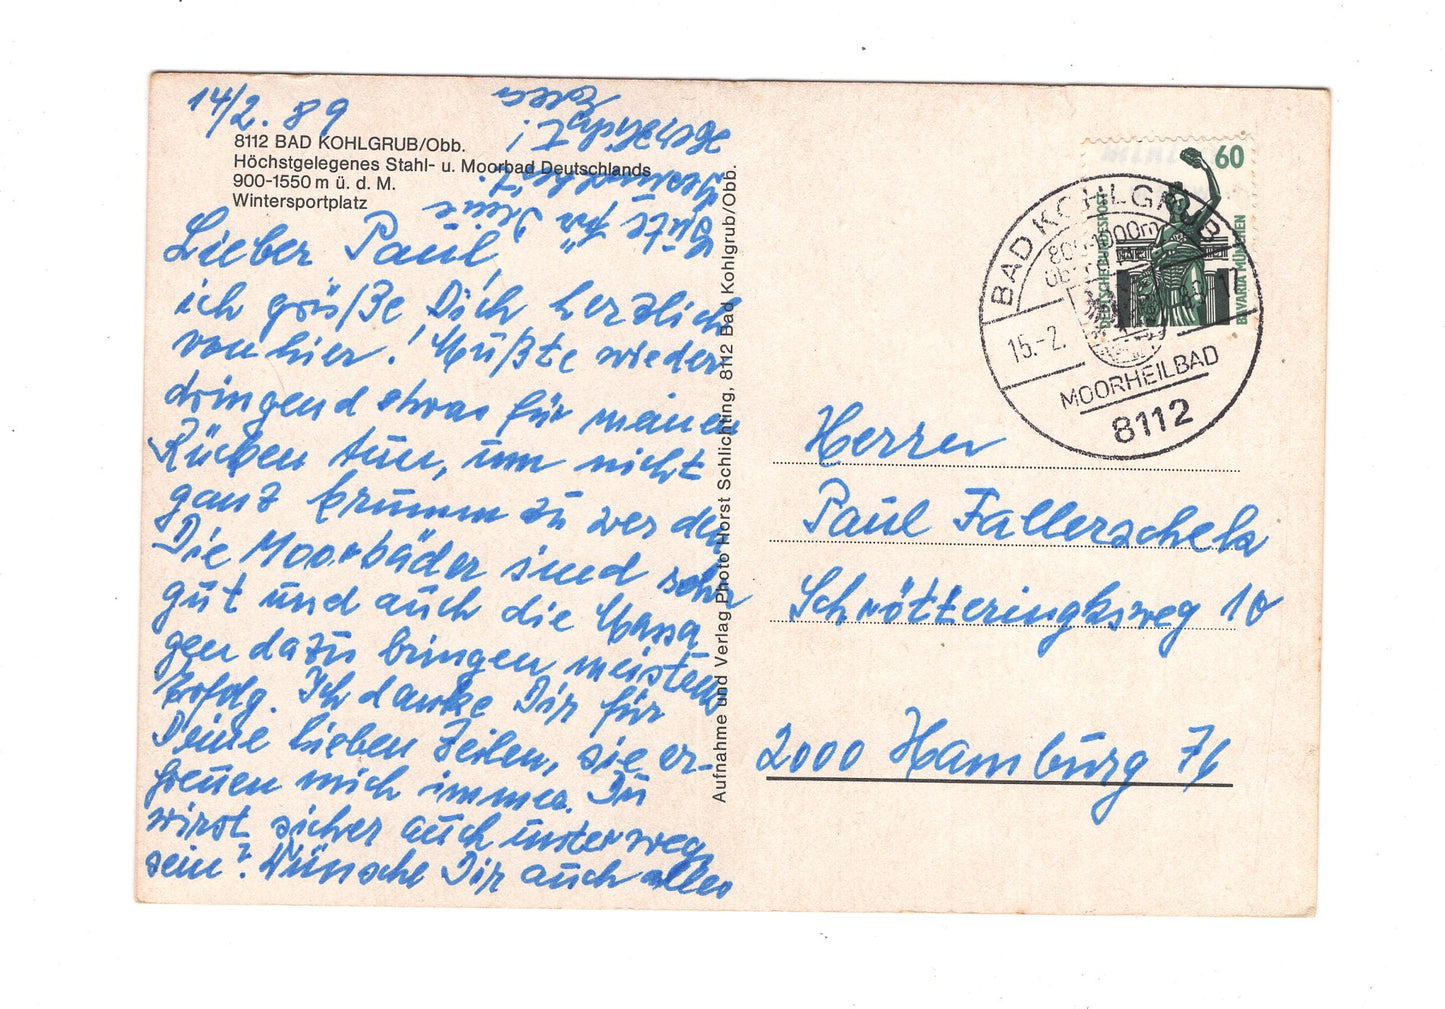 14/2. 89
8112 BAD KOHLGRUB/Obb.
Höchstgelegenes Stahl- u. Moorbad Deutschlands
900-1550 m ü. d. M.
Wintersportplatz
Lieber Paul,
ich grüße Dich herzlich
von hier! Mußte wieder
dringend etwas für meinen
Rücken tun, um nicht
ganz krumm zu werden
Die Moorbäder sind sehr
gut und auch die Massa
gen dazu bringen meistens
Erfolg. Ich danke Dir für
Deine lieben Zeilen, sie er-
freuen mich immer. Du
wirst sicher auch unterwegs
sein? Wünsche Dir auch alles
Gute für Deine
Herzlichst
Aufnahme und Verlag Photo Horst Schlichting, 8112 Bad Kohlgrub/Obb.
60
DEUTSCHE BUNDESPOST
BAVARIA MÜNCHEN
BAD KOHLGRUB
800-1000m
15.-2.
MOORHEILBAD
8112
Herrn
Paul Fallerschek
Schrötteringksweg 10
2000 Hamburg 76